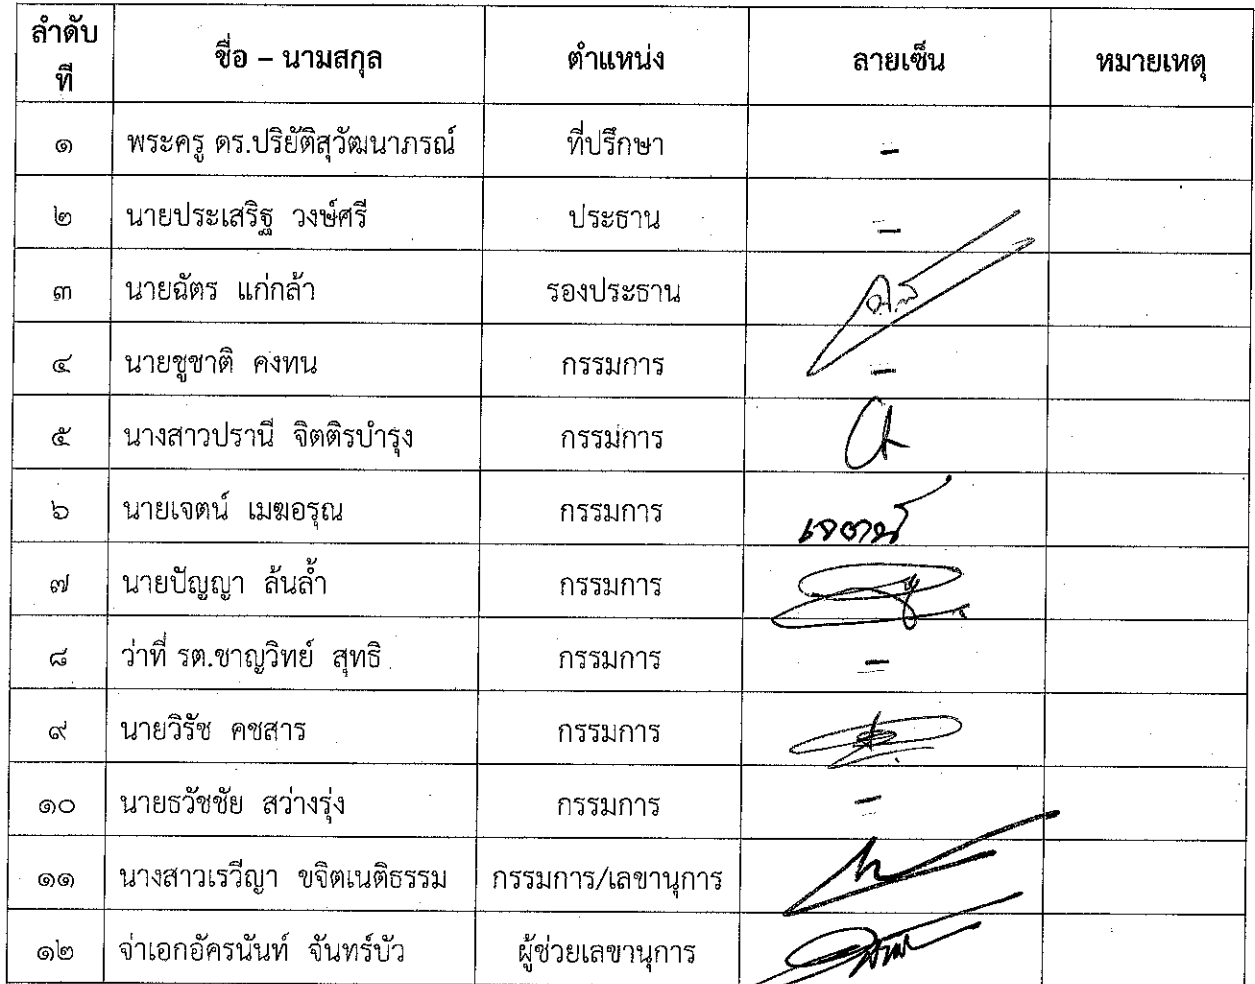 ลำดับที่ ชื่อ – นามสกุล ตำแหน่ง ลายเซ็น หมายเหตุ
๑ พระครู ดร.ปริยัติสุวัฒนาภรณ์ ที่ปรึกษา –
๒ นายประเสริฐ วงษ์ศรี ประธาน –
๓ นายฉัตร แก่กล้า รองประธาน
๔ นายชูชาติ คงทน กรรมการ –
๕ นางสาวปรานี จิตติรบำรุง กรรมการ
๖ นายเจตน์ เมฆอรุณ กรรมการ เจตน์
๗ นายปัญญา ล้นล้ำ กรรมการ
๘ ว่าที่ รต.ชาญวิทย์ สุทธิ กรรมการ –
๙ นายวิรัช คชสาร กรรมการ
๑๐ นายธวัชชัย สว่างรุ่ง กรรมการ –
๑๑ นางสาวเรวีญา ขจิตเนติธรรม กรรมการ/เลขานุการ
๑๒ จ่าเอกอัครนันท์ จันทร์บัว ผู้ช่วยเลขานุการ